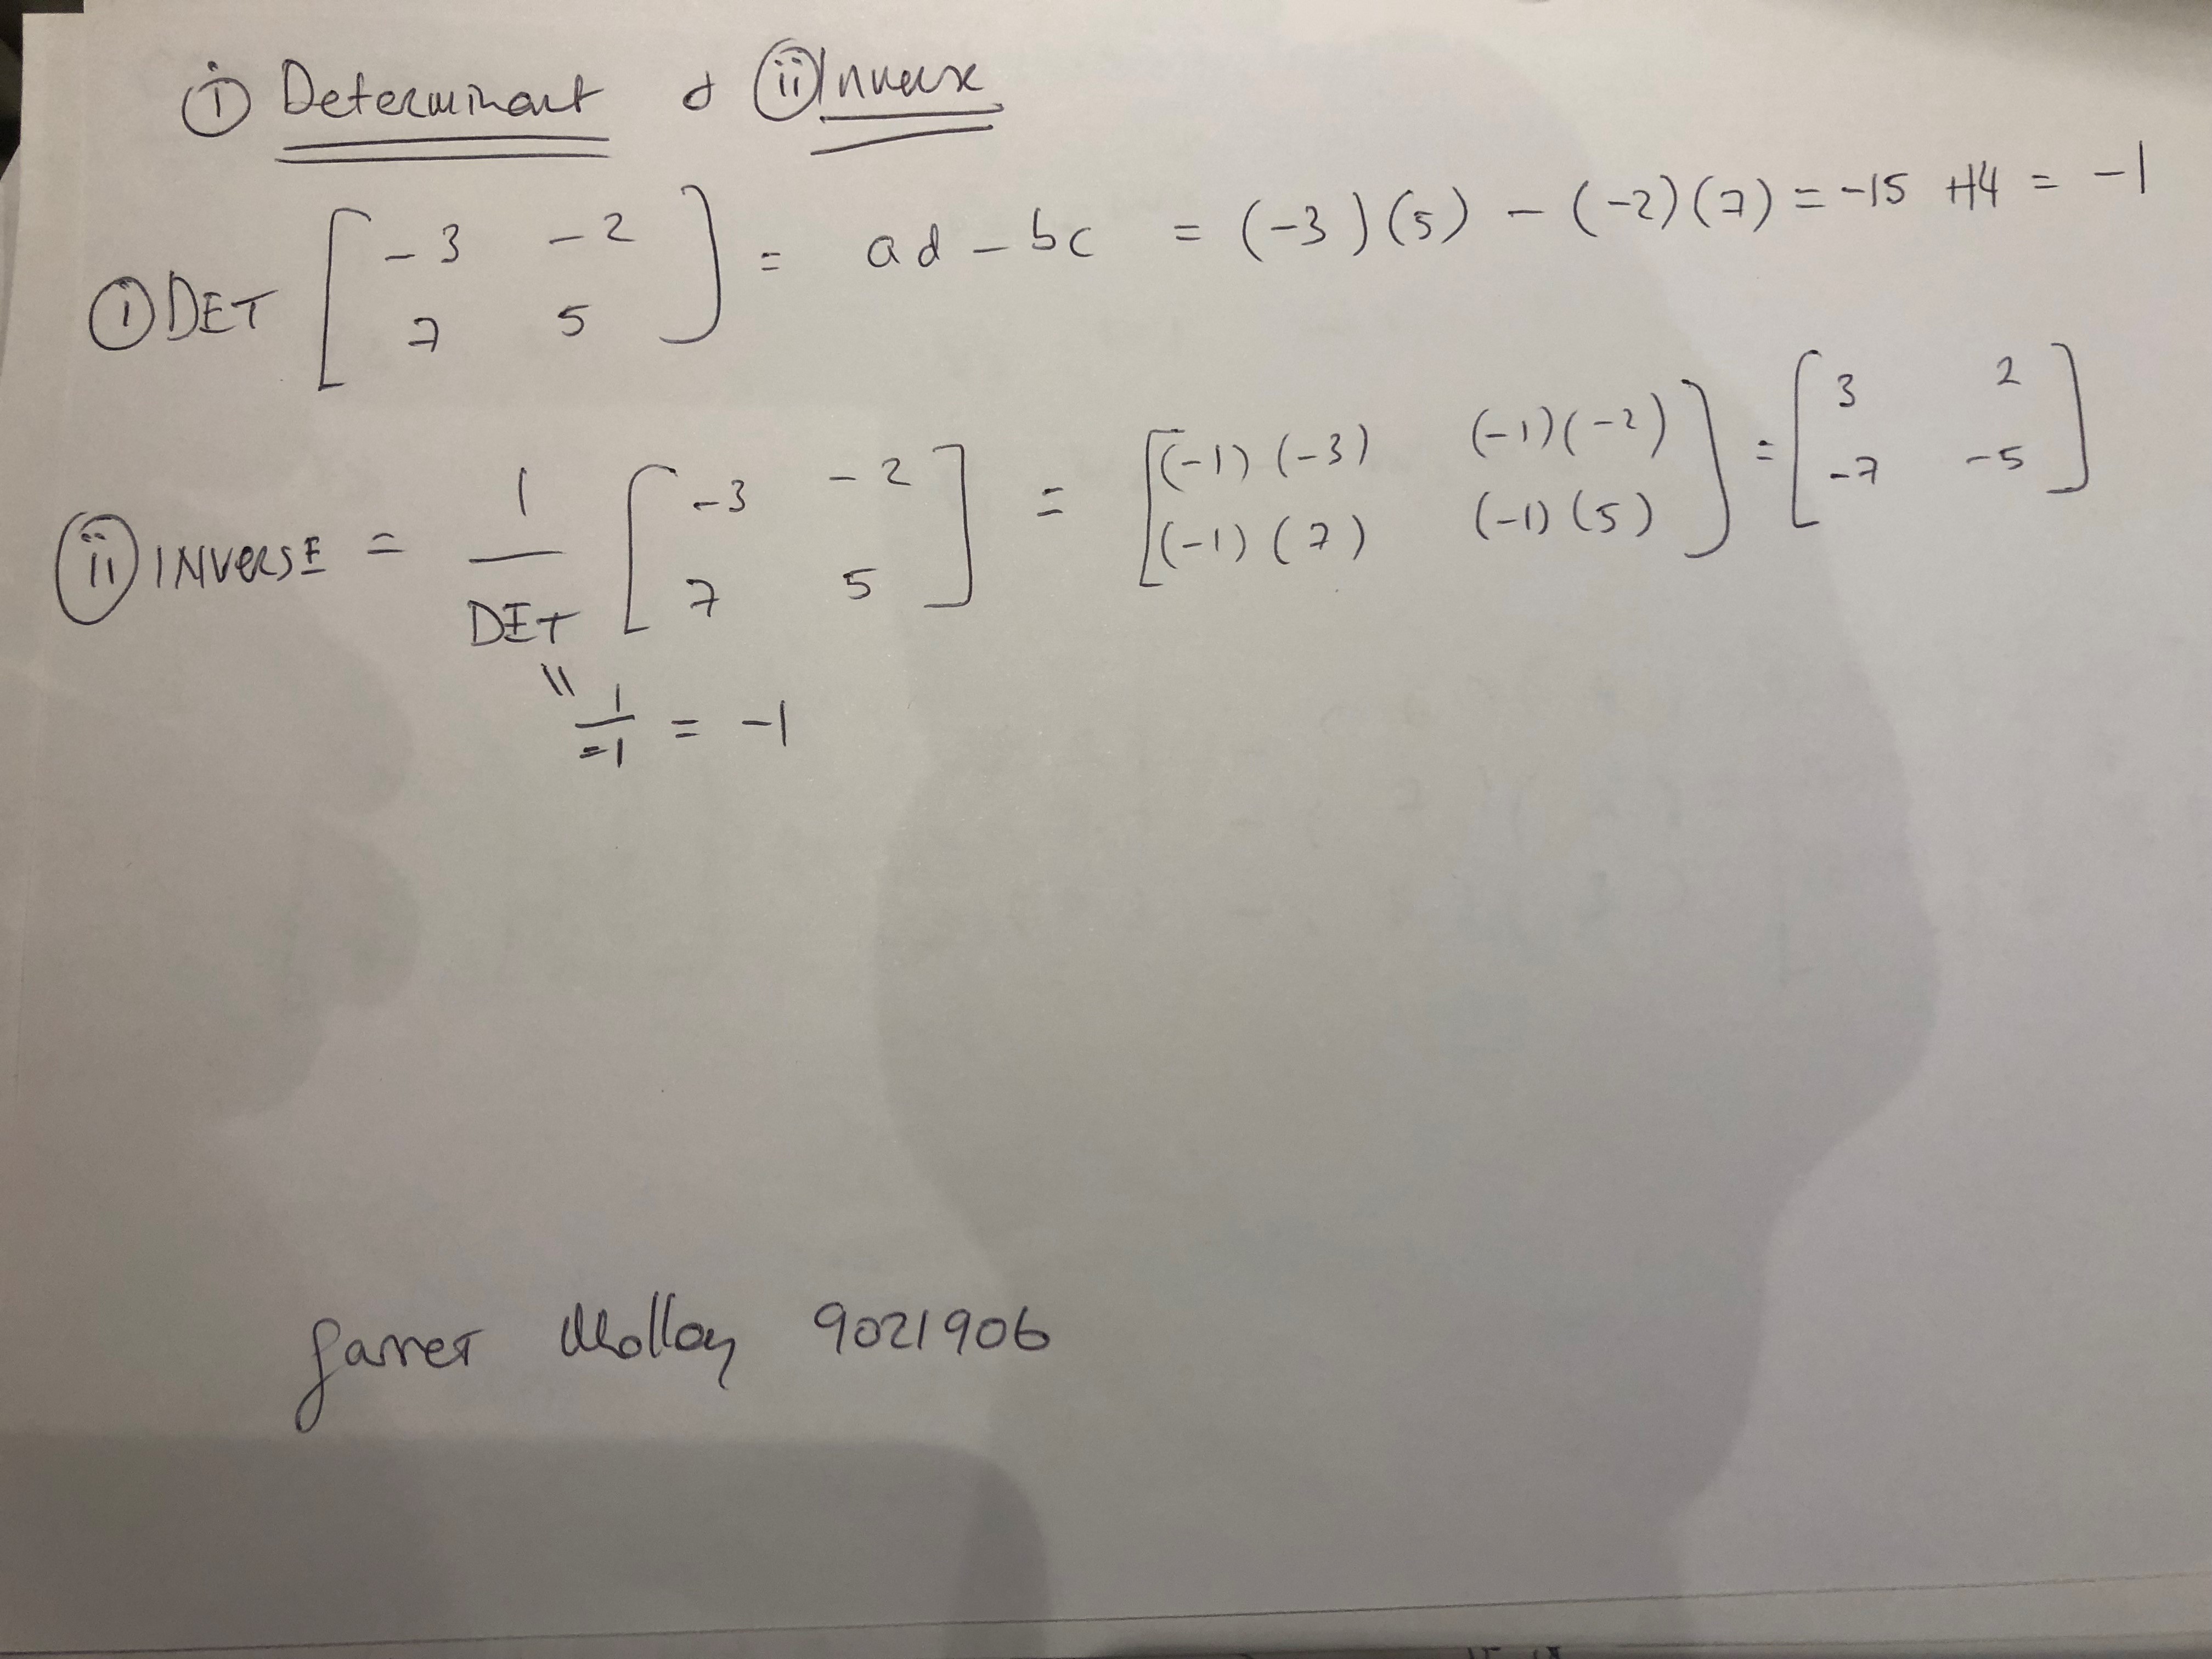 i Determinant & ii Inverse
i DET [ -3 -2 ] = ad - bc = (-3)(5) - (-2)(7) = -15 +14 = -1
[ 7 5 ]
ii INVERSE = 1/DET [ -3 -2 ] = [ (-1)(-3) (-1)(-2) ] = [ 3 2 ]
[ 7 5 ] [ (-1)(7) (-1)(5) ] [ -7 -5 ]
" 1/-1 = -1
Garret Molloy 9021906